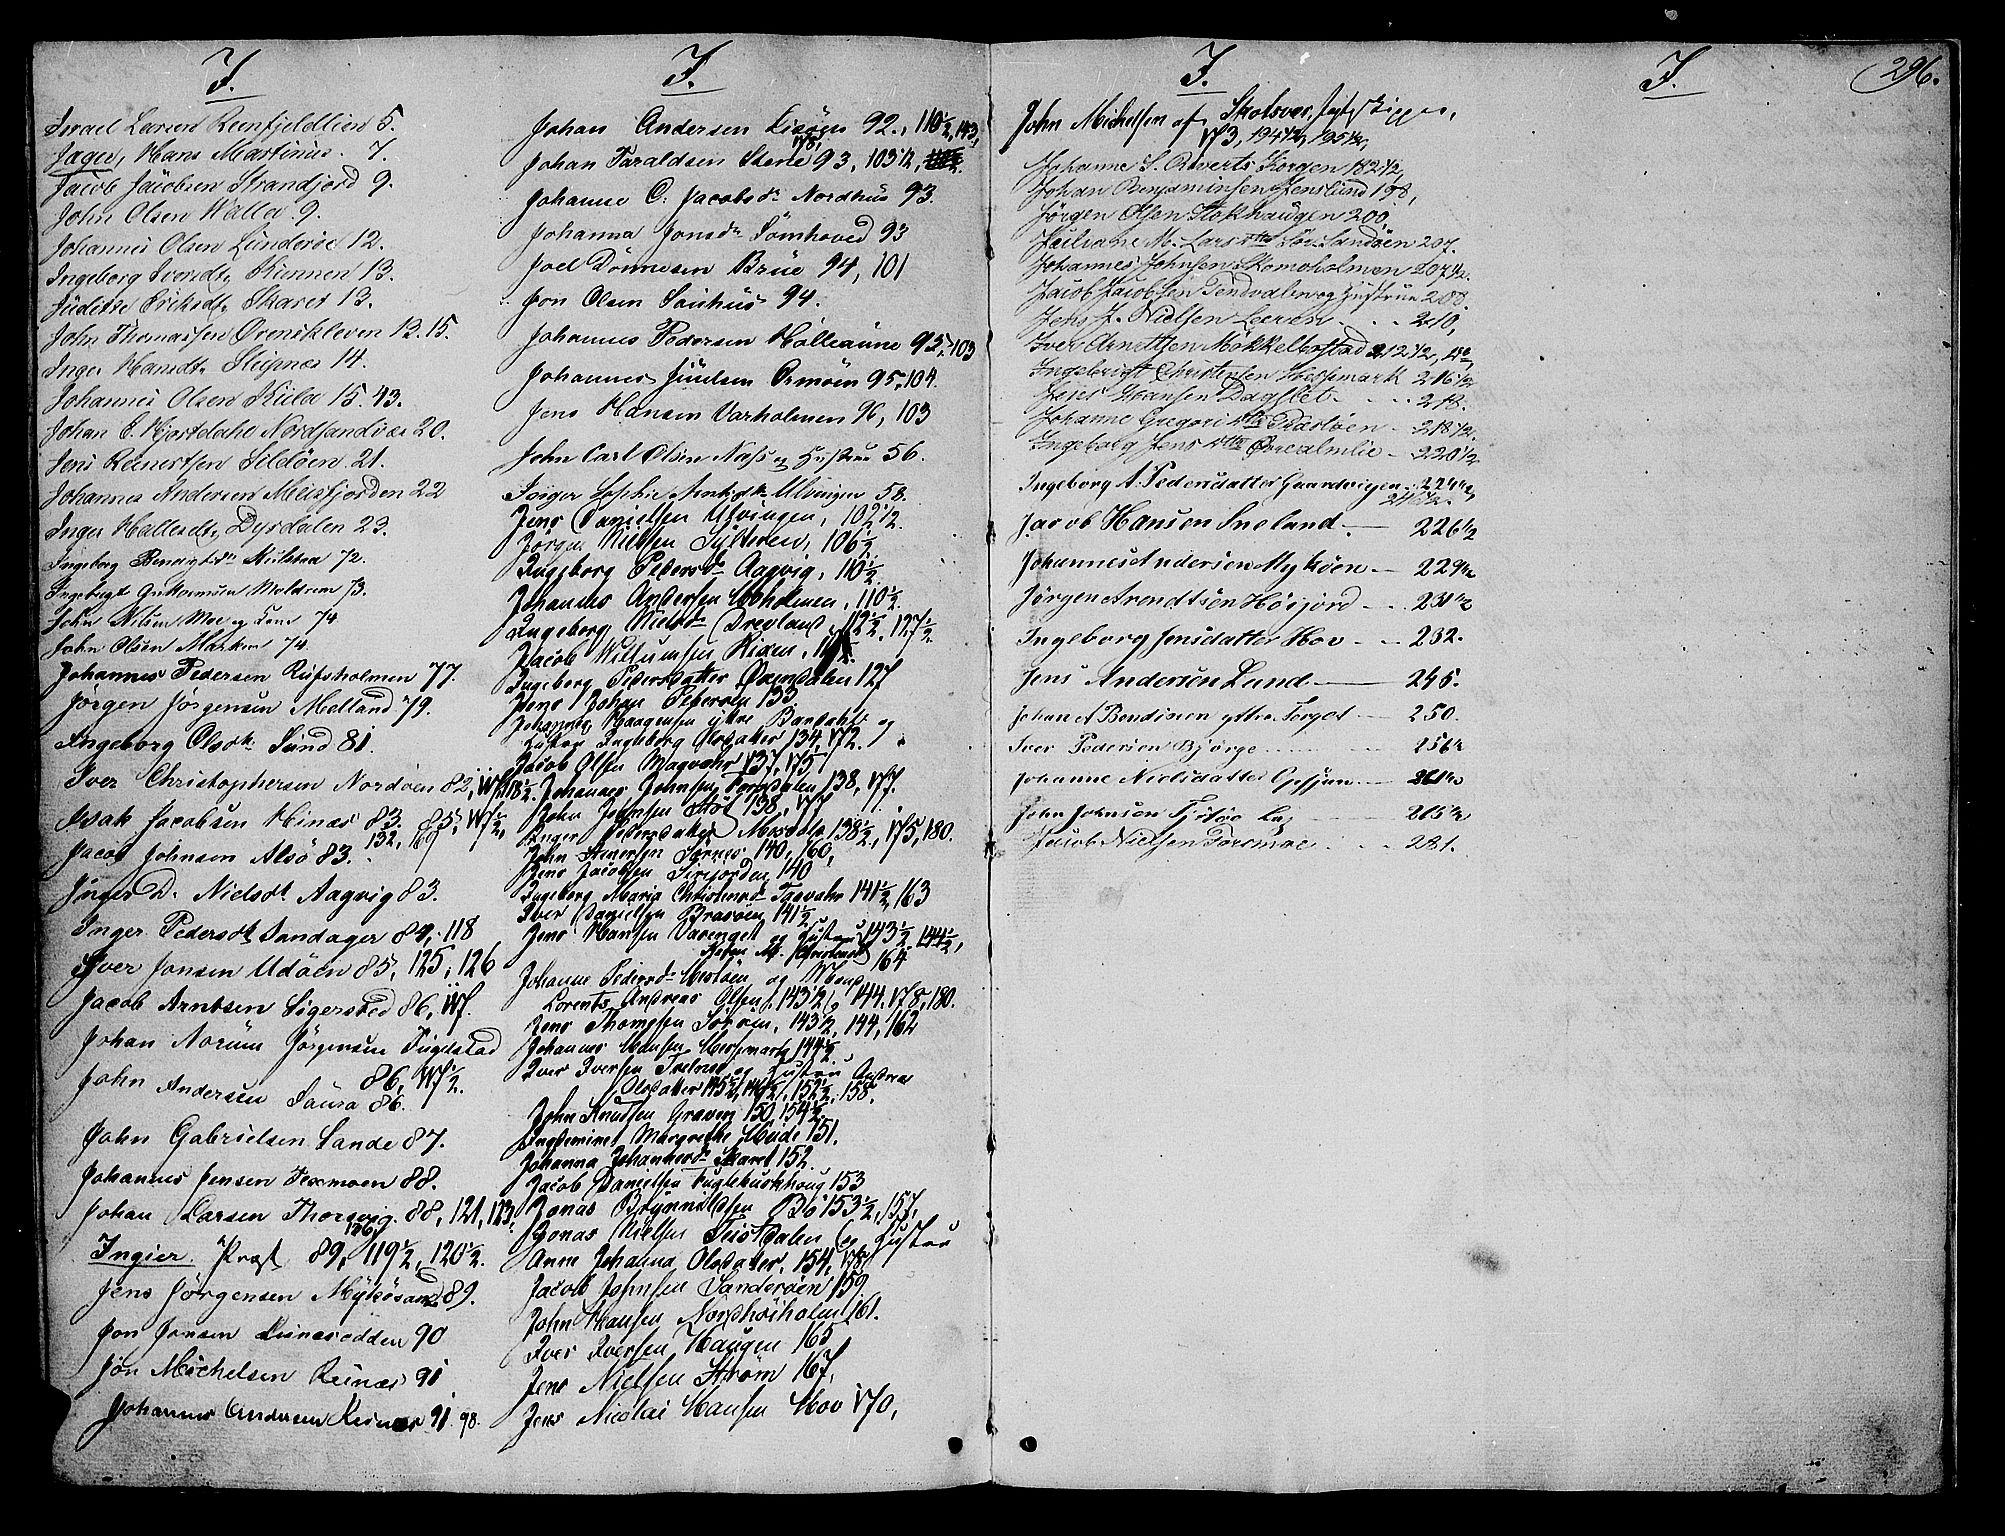 J.
Israel Larsen Reenfjeldlien 5.
Jæger, Hans Martinus. 7.
Jacob Jacobsen Strandjord 9.
John Olsen Walla 9.
Johannes Olsen Lünderøe 12.
Ingeborg Iversdt. Kunnen 13.
Judithe Eriksdt. Skaret 13.
John Thomassen Ørenskleven 13. 15.
Inger Hansdt. Stupnæs 14.
Johannes Olsen Kiela 15. 43.
Johan E. Hjortdahl Nordsandnæs 20.
Jens Reinertsen Sildøen 21.
Johannes Andersen Meisfjorden 22
Inger Hallesdt. Dysdalen 23.
Ingeborg 72.
Ingebrigt Guttormsen Meldrem 73.
John Nilsen Moe og Kone 74
John Olsen Marken 74.
Johannes Pedersen Rufsholmen 77.
Jörgen Jörgensen Melland 79.
Ingeborg Olsdt. Sund 81.
Iver Christophersen Nordöen 82, 117, 118½.
Isak Jacobsen Hinæs 83, 85, 117½,
132, 169
Jacob Johnsen Alsö 83.
Inger D. Nielsdt Aagvig 83.
Inger Pedersdt Sandager 84, 118
Iver Jonsen Udöen 85, 125, 126
Jacob Arntsen Sigersted 86, 117.
Johan Norüm Jörgensen Tuglstad
86, 117½.
John Andersen Saura 86.
John Gabrielsen Sande 87.
Johannes Jensen Texmoen 88.
Johan Larsen Thorsvig 88, 121, 123,
126,
Ingier. Præst 89, 119½, 120½.
Jens Jörgensen Mykösand 89.
Jon Jonsen Reinesodden 90
Jon Michelsen Reinæs 91
Johannes Andersen Reinæs 91. 98.
J.
Johan Andersen Lisöen 92, 110½, 143,
178,
Johan Taraldsen Stene 93, 103½,
Johanne C. Jacobsdr. Nordhüs 93.
Johanna Jonsdr Sömhoved 93
Joel Dönnesen Brüe 94, 101
Jon Olsen Sauhüs 94.
Johannes Pedersen Halleaune 95, 103
Johannes Jüülsen Ormöen 95, 104.
Jens Hansen Varholmen 96, 103
John Carl Olsen Næss og Hustrue 56.
Inger Sophie Arntsdr Ulvingen 58.
Jens Danielsen Ulvingen, 102½.
Jörgen Nielsen Sylteren, 106½
Ingeborg Pedersdr Aagvig, 110½.
Johannes Andersen Moholmen, 110½.
Ingeborg Nielsdr Drevland, 112½. 127½.
Jacob Willumsen Risen,
Ingeborg Pedersdatter Önesdalen 127
Jens Johan Petersen 133
Johannes Haagensen ytre Bardahl og
Hustru Ingeborg Olsdatter 134, 172.
Jacob Olsen Magvahr 137, 175
Johannes Johnsen Forsdalen 138, 177.
John Johnsen 138, 177
Inger Pedersdatter Mosdale 138½, 175, 180.
John Steversen Sörnes 140, 160,
Jens Jacobsen Sörfjorden 140
Ingeborg Maria Christensd Tasvahr 141½, 163
Iver Danielsen Brasöen 141½
Jens Hansen Varenget og Hustru 143½, 144½,
Christensdr 164
Johanne Pedersdr Mesloen og Mand
Lorents Andreas Olsen, 143½, 144, 178, 180.
Jens Thomesen Söröen, 143½, 144, 162
Johannes Hansen Hessmark 144½.
Iver Iversen Trælnes og Hustru Andrea
Olsdatter 145½, 146½, 152½, 158.
John Knudsen Graven 150, 154½
Ingeminet Margrethe Hude 151.
Johanna Johannesdr Skaret 152
Jacob Danielsen Fuglebuskhoug 153
Jonas Brynnildsen Bö 153½, 157,
Jonas Nielsen Tustdalen og Hustru
Anne Johanna Olsdatter. 154, 178,
Jacob Johnsen Sanderöen 159.
John Hansen Nordhöiholm 161.
Iver Iversen Haugen 165
Jens Nielsen Ström 167,
Jens Nicolai Hansen Hov 170,
J.
John Michelsen af Skotsvær,
173, 194½, 195½,
Johanne S. Korgen 182½,
Johan Benjaminsen Jenslund 198,
Jörgen Olsen Stokhaugen 200,
Juliane M. Larsdtter Sör-Sandöen 207.
Johannes Johnsen Skomoholmen 207½.
Jacob Jacobsen Tendvalen og Hustrue 208.
Jens J. Nielsen Leeren . . . . 210,
Iver Arnettsen Mökkelbostad 212½,
Ingebrigt Christensen Hessmark 216½
Jens Hansen Dagslet. . . . . 218.
Johanne Gregoridtter Træsloen - 218½.
Ingeborg Jensdtter Övrealmlie - 220½
Ingeborg A. Pedersdatter Gaardvigen. 224½,
246½.
Jacob Hansen Sneland. — 226½
Johannes Andersen Myköen — 229½
Jörgen Arendtsen Högjord — 231½
Ingeborg Jensdatter Hov — 232.
Jens Andersen Lund — 245.
Johan A Bendixen yttre Torget — 250.
Iver Pedersen Bjørge . . . . 256½
Johanne Nielsdatter Gpsjøn — 261½
John Johnsen Tjötöe Lag — 265½
Jacob Nielsen Foremoe . . . 281.
J.
296.